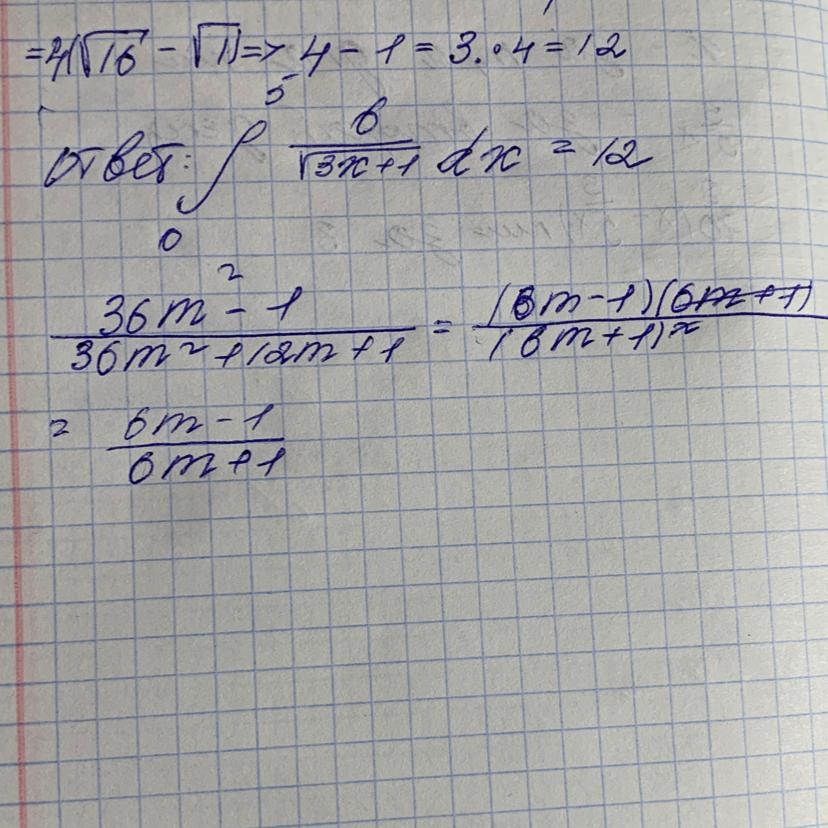 =4(√16 - √1) => 4 - 1 = 3 · 4 = 12
Ответ: ∫₀⁵ 6/√(3x+1) dx = 12
(36m² - 1)/(36m² + 12m + 1) = (6m-1)(6m+1)/(6m+1)²
= (6m - 1)/(6m + 1)